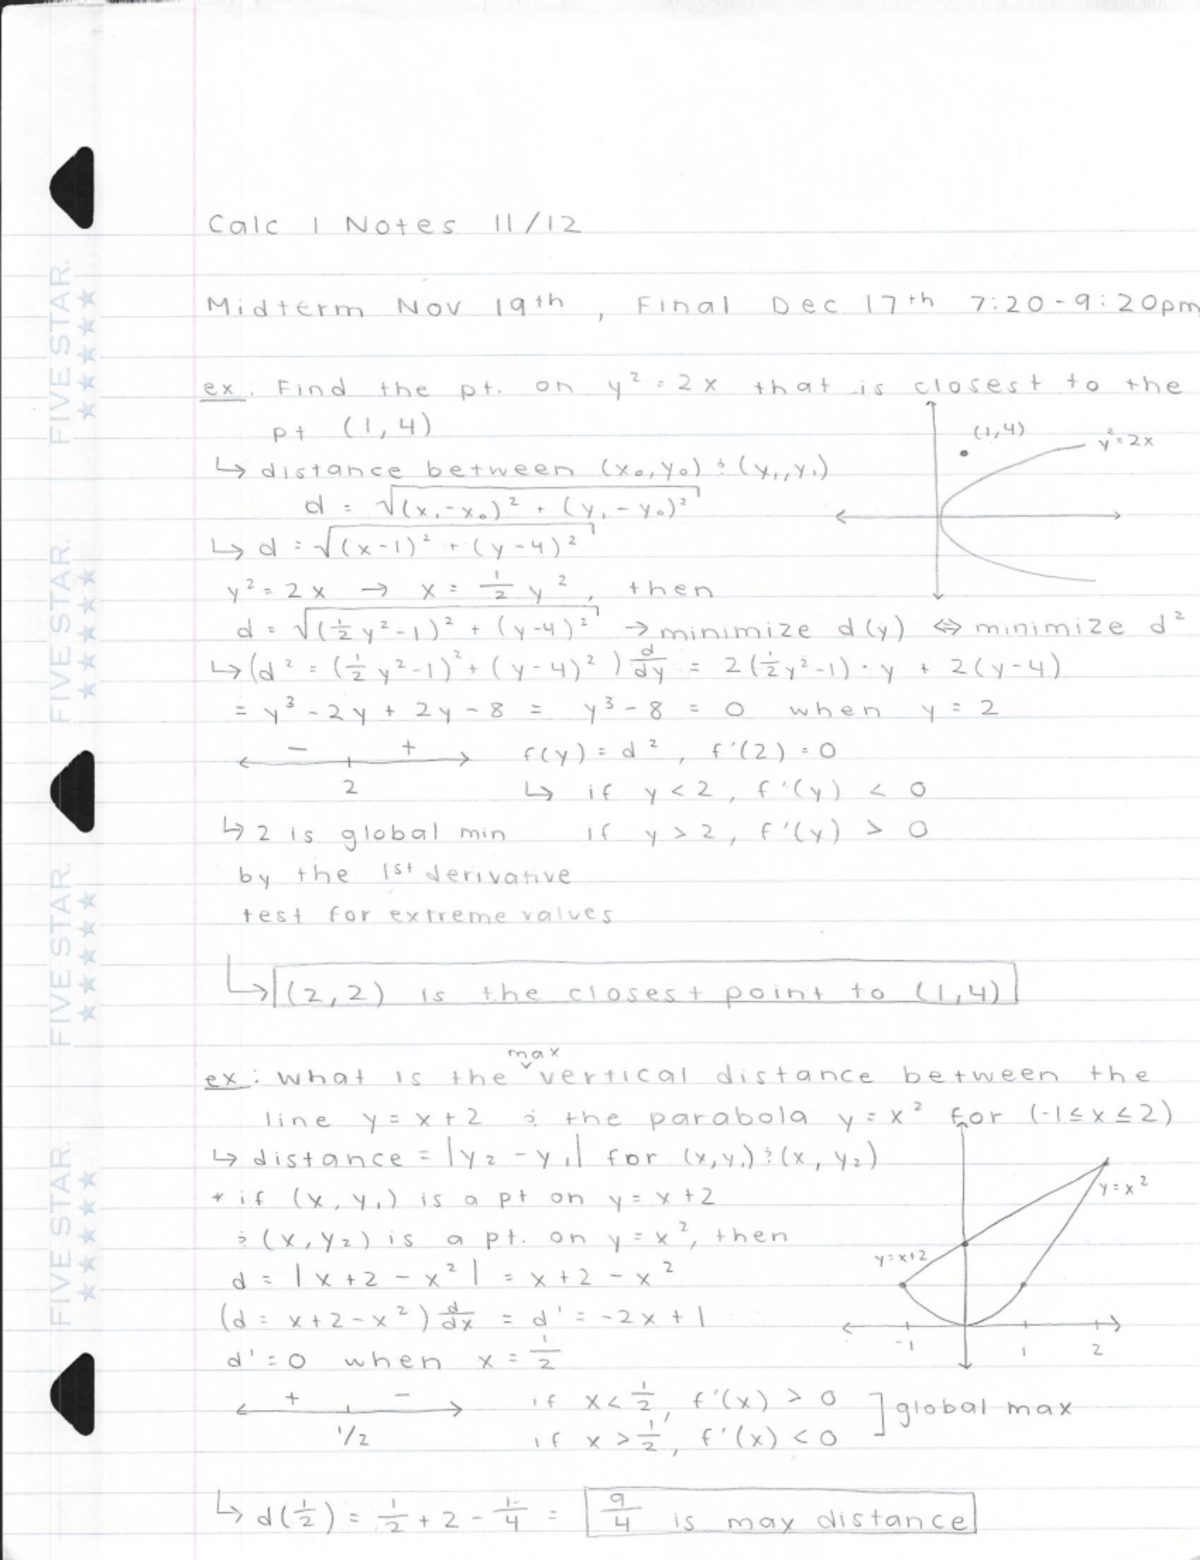 Calc 1 Notes 11/12
Midterm Nov 19th, Final Dec 17th 7:20-9:20pm
ex: Find the pt. on y² = 2x that is closest to the
pt (1,4)
(1,4)
y² = 2x
↳ distance between (x₀,y₀) & (x₁,y₁)
d = √(x₁-x₀)² + (y₁-y₀)²
↳ d = √(x-1)² + (y-4)²
y² = 2x → x = ½ y², then
d = √(½y²-1)² + (y-4)² → minimize d(y) ⇔ minimize d²
↳ (d² = (½y²-1)² + (y-4)²) d/dy = 2(½y²-1)·y + 2(y-4)
= y³ - 2y + 2y - 8 = y³ - 8 = 0 when y = 2
- +
2
f(y) = d², f'(2) = 0
↳ if y < 2, f'(y) < 0
↳ 2 is global min if y > 2, f'(y) > 0
by the 1st derivative
test for extreme values
↳ (2,2) is the closest point to (1,4)
max
ex: what is the ˅ vertical distance between the
line y = x+2 & the parabola y = x² for (-1≤x≤2)
↳ distance = |y₂ - y₁| for (x,y₁) & (x,y₂)
* if (x,y₁) is a pt on y = x+2
& (x,y₂) is a pt. on y = x², then
d = |x+2 - x²| = x+2 - x²
(d = x+2-x²) d/dx = d' = -2x + 1
d' = 0 when x = ½
y = x²
y = x+2
-1 1 2
+ -
1/2
if x < ½, f'(x) > 0
if x > ½, f'(x) < 0
] global max
↳ d(½) = ½ + 2 - ¼ = 9/4 is max distance
FIVE STAR. ★★★★★
FIVE STAR. ★★★★★
FIVE STAR. ★★★★★
FIVE STAR. ★★★★★